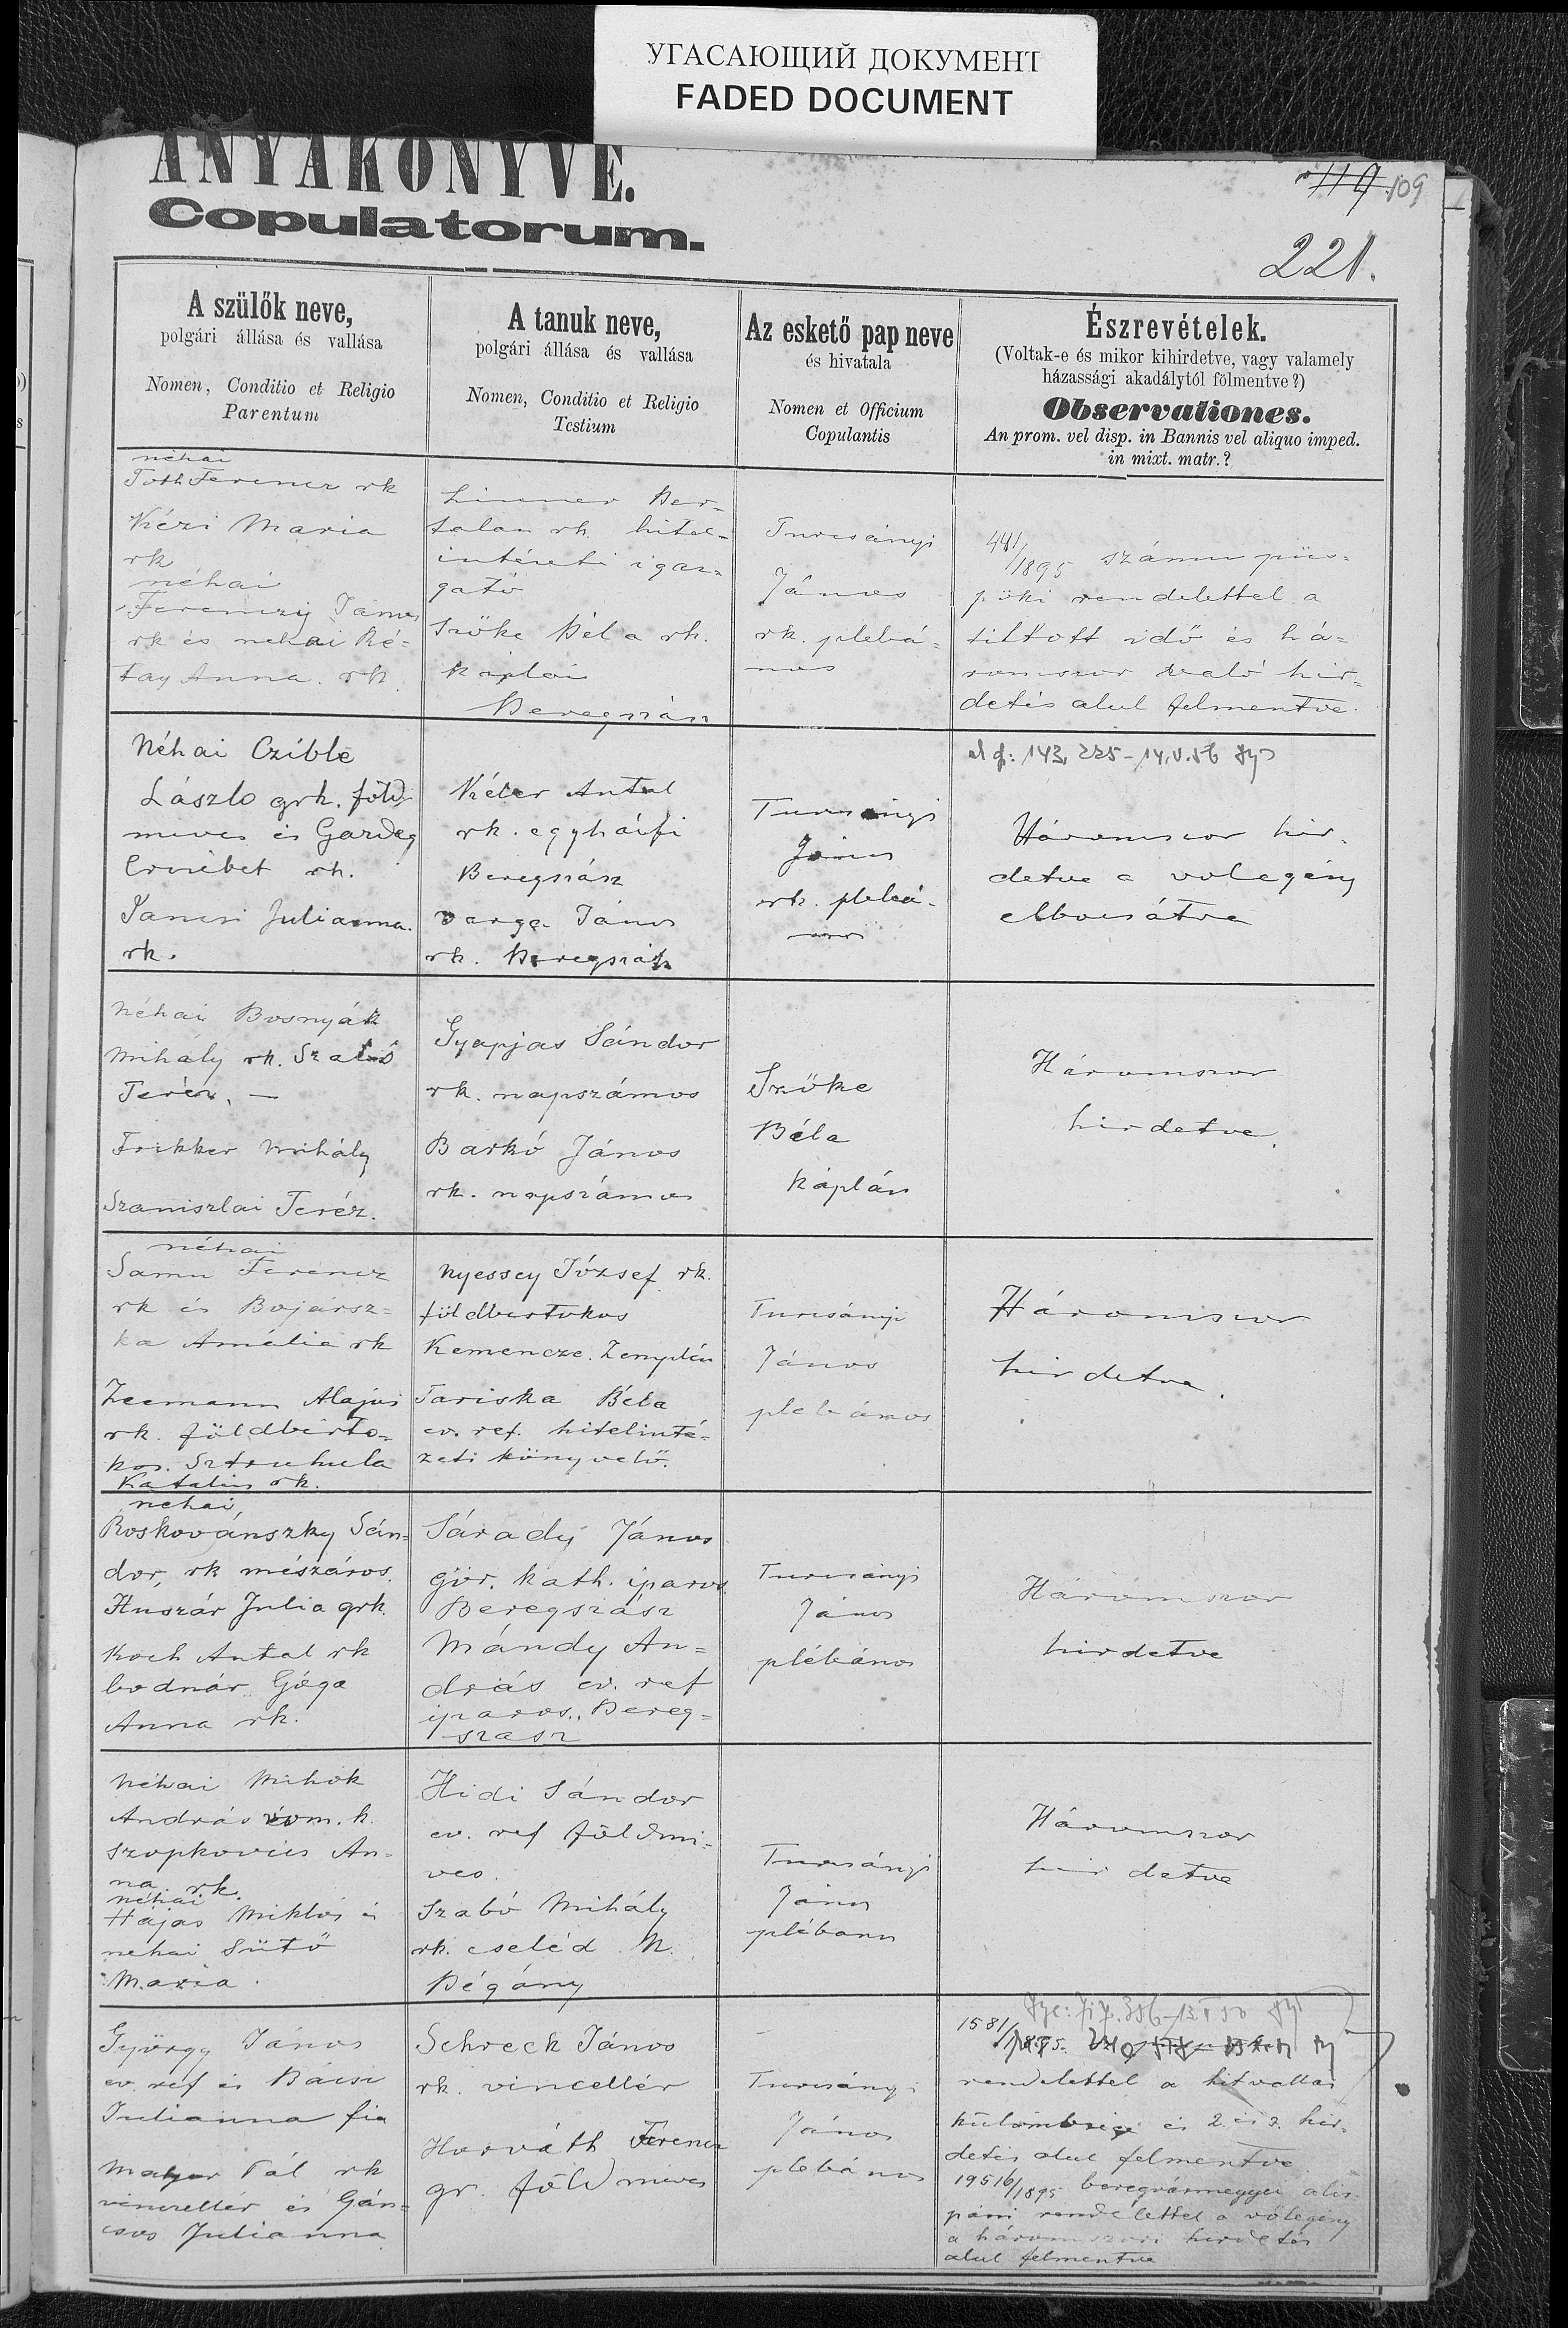 УГАСАЮЩИЙ ДОКУМЕНТ
FADED DOCUMENT
ANYAKÖNYVE.
Copulatorum.
119 109
221.
A szülők neve,
polgári állása és vallása
Nomen, Conditio et Religio
Parentum
A tanuk neve,
polgári állása és vallása
Nomen, Conditio et Religio
Testium
Az eskető pap neve
és hivatala
Nomen et Officium
Copulantis
Észrevételek.
(Voltak-e és mikor kihirdetve, vagy valamely
házassági akadálytól fölmentve?)
Observationes.
An prom. vel disp. in Bannis vel aliquo imped.
in mixt. matr.?
néhai
Toth Ferencz rk
Kézi Maria
rk
néhai
Ferenczy János
rk és nehai Ré-
tay Anna. rk.
Linner Ber-
talan rk. hitel-
intézeti igaz-
gató
Szőke Béla rk.
káplán
Beregszász
Turcsányi
János
rk. plebá-
nos
441/1895 számu püs-
pöki rendelettel a
tiltott idő és há-
romszor való hir-
detés alul felmentve.
Néhai Czible
László grk. föld-
mives és Gardeg
Erzsébet rk.
Jancsi Julianna.
rk.
Kéler Antal
rk. egyházfi
Beregszász
Varga János
rk. Beregszász
Turcsányi
János
rk. plebá-
nos
143, 225-14.V.56
Háromszor hir-
detve a volegény
elbocsátva
Néhai Bosnyák
Mihály rk. Szabó
Teréz. —
Frikker Mihály
Szaniszlai Teréz.
Gyapjas Sándor
rk. napszámos
Barkó János
rk. napszámos
Szőke
Béla
káplán
Háromszor
hirdetve.
néhai
Samu Ferencz
rk és Bojársz-
ka Amália rk
Zeemann Alajos
rk. földbirto-
kos. Sztruhula
Katalin rk.
Nyessey József rk.
földbirtokos
Kemencze. Zemplén
Tariska Béla
ev. ref. hitelinté-
zeti könyvelő.
Turcsányi
János
plebános
Háromszor
hirdetve.
néhai
Roskovánszky Sán-
dor, rk mészáros.
Huszár Julia grk.
Koch Antal rk
bodnár Góga
Anna rk.
Sárady János
gör. kath. iparos
Beregszász
Mándy An-
drás ev. ref
iparos., Bereg-
szasz
Turcsányi
János
plébános
Háromszor
hirdetve
Néhai Mihok
András rom. k.
Szopkovics An-
na rk.
néhai
Hajas Miklós és
nehai Sütő
Maria.
Hidi Sándor
ev. ref földmi-
ves.
Szabó Mihály
rk. cseléd N.
Bégány
Turcsányi
János
plébanos
Háromszor
hirdetve
György János
ev. ref és Bácsi
Julianna fia
Mayer Pál rk
vinczellér és Gán-
csos Julianna
Schreck János
rk. vincellér
Horváth Ferencz
gr. föld mives
Turcsányi
János
plebános
1581/1895.
rendelettel a hitvallás
külömbsége és 2. és 3. hir-
detés alul felmentve
19516/1895 beregvármegyei alis-
páni rendelettel a völegény
a háromszori hirdetés
alul felmentve